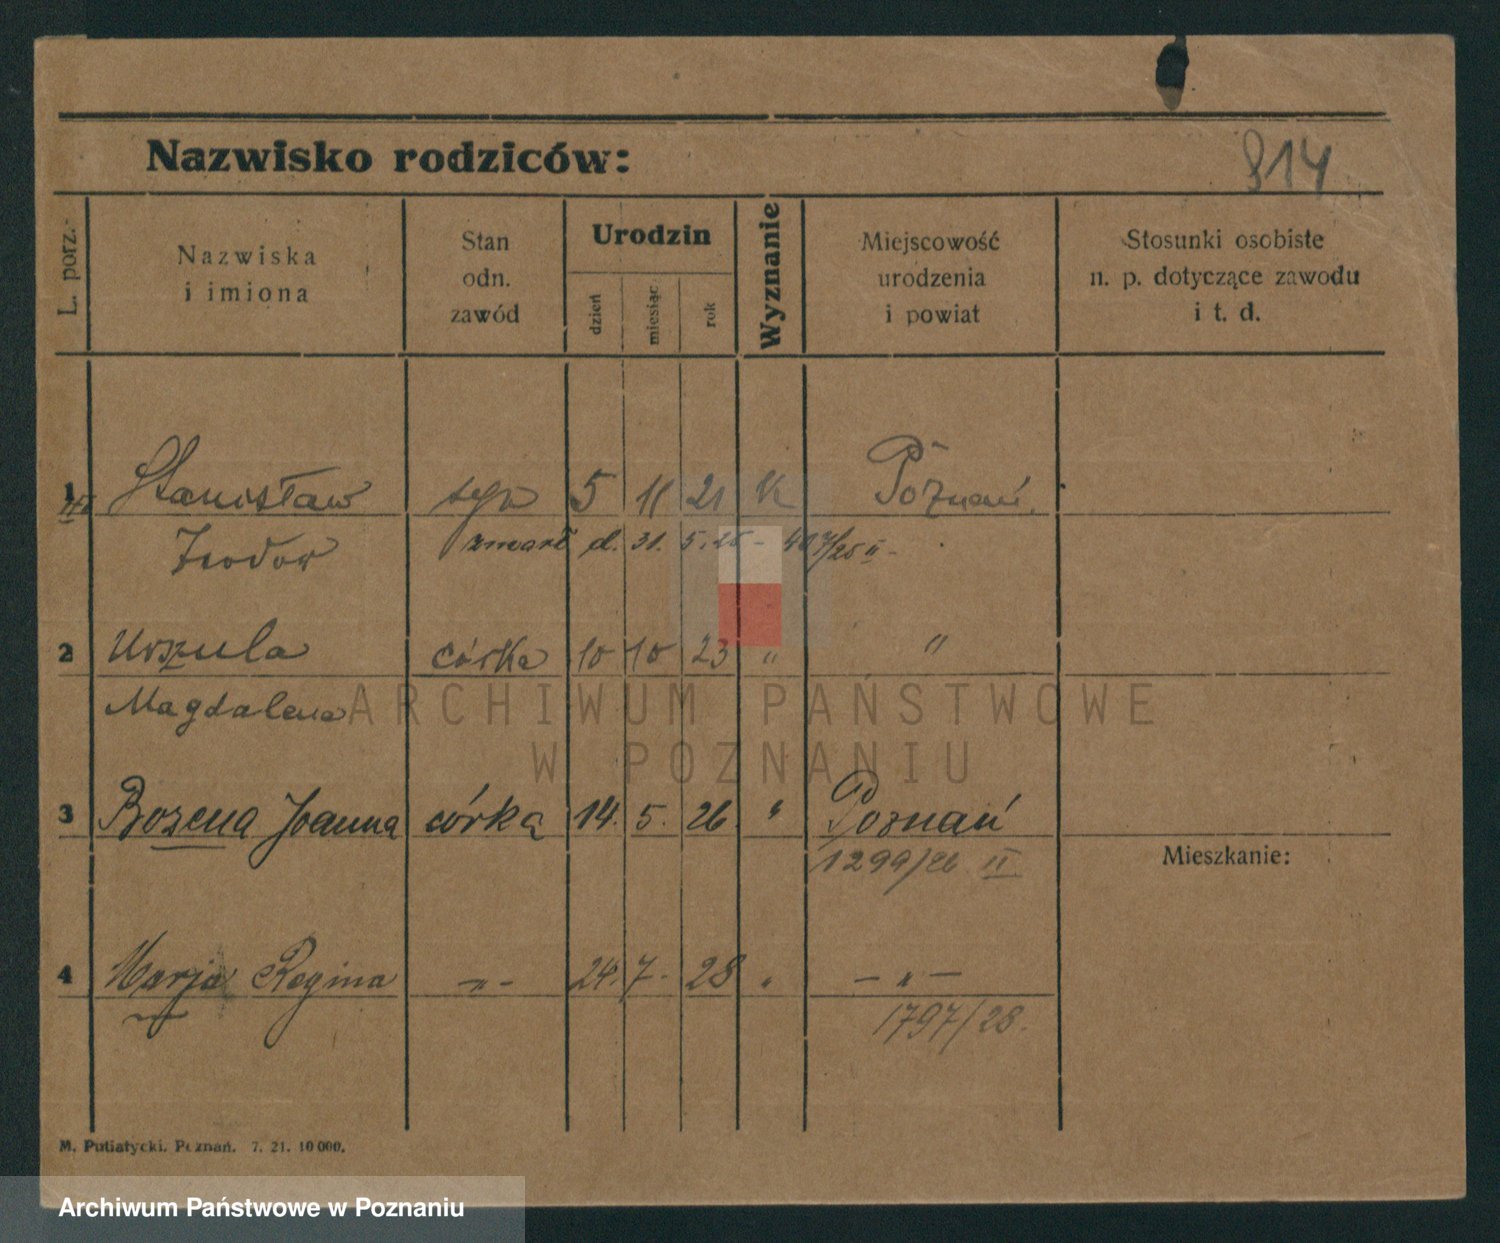 Nazwisko rodziców:
814
L. porz.
Nazwiska
i imiona
Stan
odn.
zawód
Urodzin
dzień
miesiąc
rok
Wyznanie
Miejscowość
urodzenia
i powiat
Stosunki osobiste
n. p. dotyczące zawodu
i t. d.
1 Stanisław syn 5 11 21 K Poznań.
Teodor zmarł d. 31. 5. 25 -
2 Urszula córka 10 10 23 " "
Magdalena
ARCHIWUM PAŃSTWOWE
W POZNANIU
3 Bożena Joanna córka 14. 5. 26 " Poznań
1299/26 II
Mieszkanie:
4 Marja Regina - " - 24. 7. 28 " - " -
1797/28.
M. Putiatycki. Poznań. 7. 21. 10 000.
Archiwum Państwowe w Poznaniu